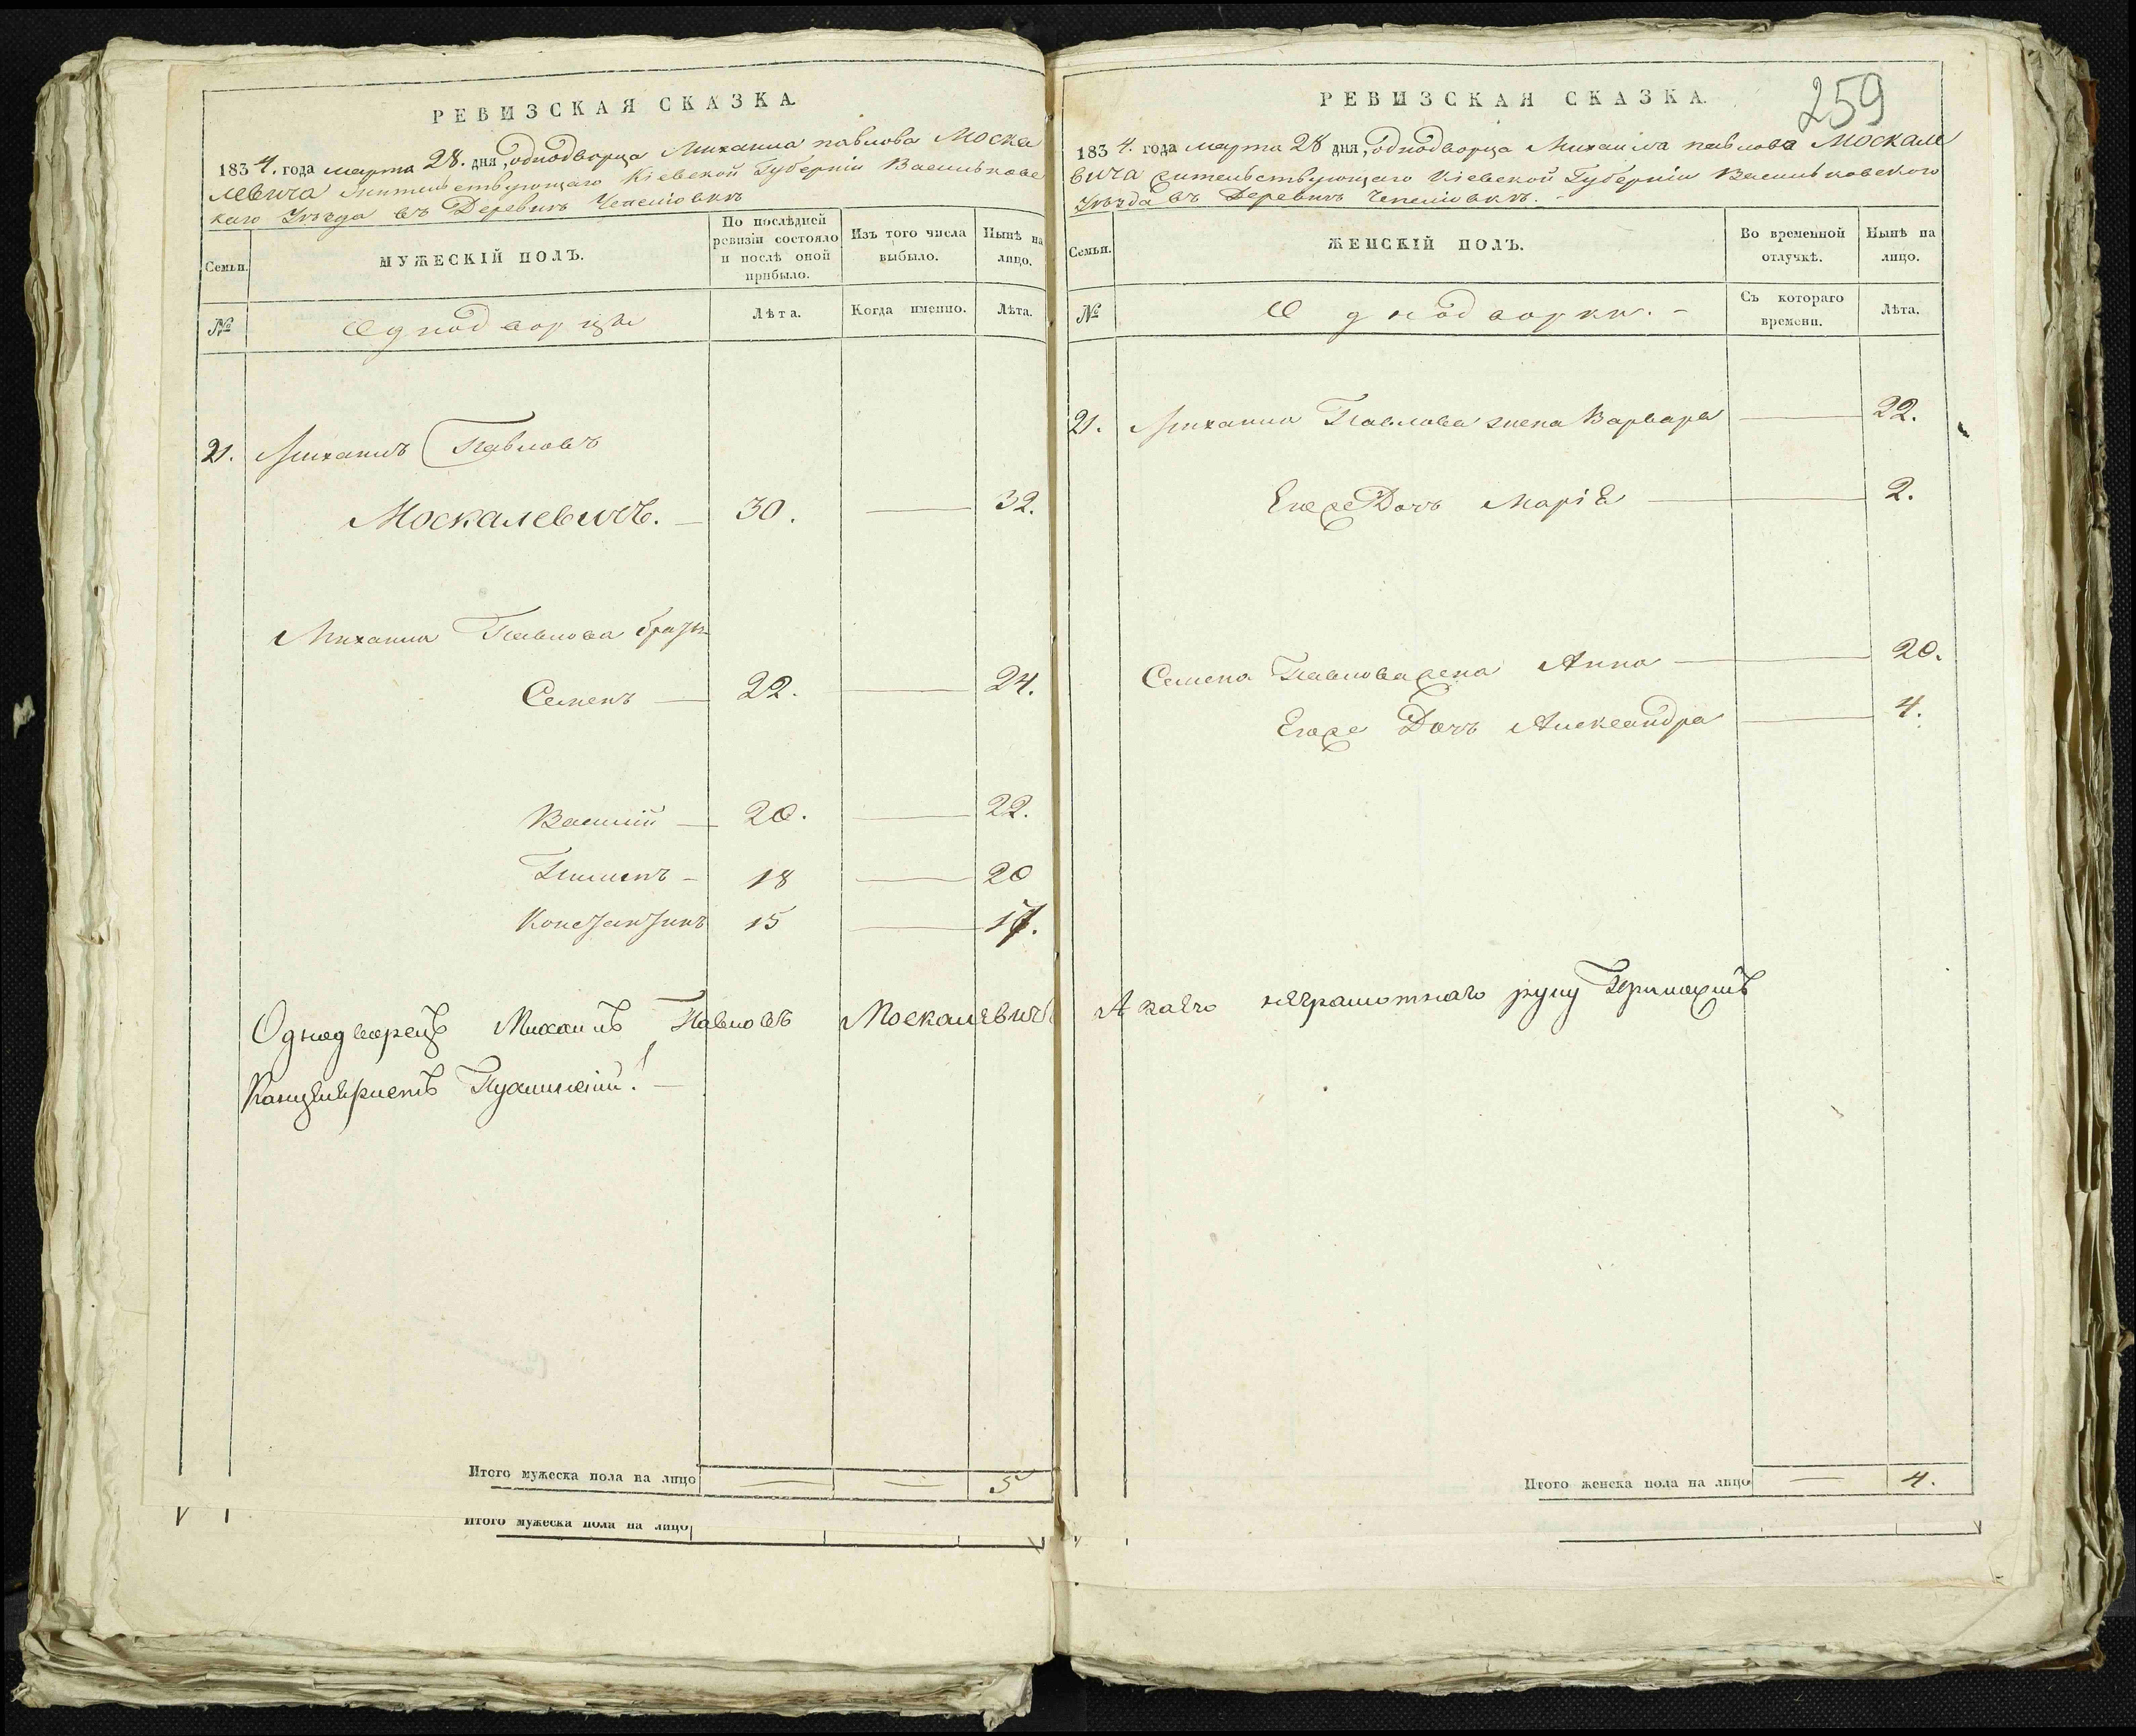 РЕВИЗСКАЯ СКАЗКА.
1834. года марта 28. дня, однодворца Михаила павлова Моска
левича жительствующаго Кіевской Губерніи Васильковс
каго Уѣзда въ Деревнѣ Чепелiовкѣ
Семьи.
МУЖЕСКІЙ ПОЛЪ.
По послѣдней ревизіи состояло и послѣ оной прибыло.
Изъ того числа выбыло.
Нынѣ на лицо.
№
Однодворцы
Лѣта.
Когда именно.
Лѣта.
21. Михаилъ Павловъ
Москалевичъ. — 30. — 32.
Михаила Павлова браты
Семенъ — 22. — 24.
Василій — 20. — 22.
18 — 20
Константинъ 15 — 17.
Однодворецъ Михаилъ Павловъ Москалевичъ
Канцеляристъ
Итого мужеска пола на лицо — — 5
Итого мужеска пола на лицо
259
РЕВИЗСКАЯ СКАЗКА.
1834. года марта 28 дня, однодворца Михаила павлова Москале
вича жительствующаго Кіевской Губерніи Васильковского
Уѣзда въ Деревнѣ Чепелiовкѣ. —
Семьи.
ЖЕНСКІЙ ПОЛЪ.
Во временной отлучкѣ.
Нынѣ на лицо.
№
Однодворки. —
Съ котораго времени.
Лѣта.
21. Михаила Павлова жена Варвара — 22.
Егоже Дочъ Маріа — 2.
Семена Павлова жена Анна — 20.
Егоже Дочъ Александра — 4.
А заего неграмотнаго руку приложилъ
Итого женска пола на лицо — 4.